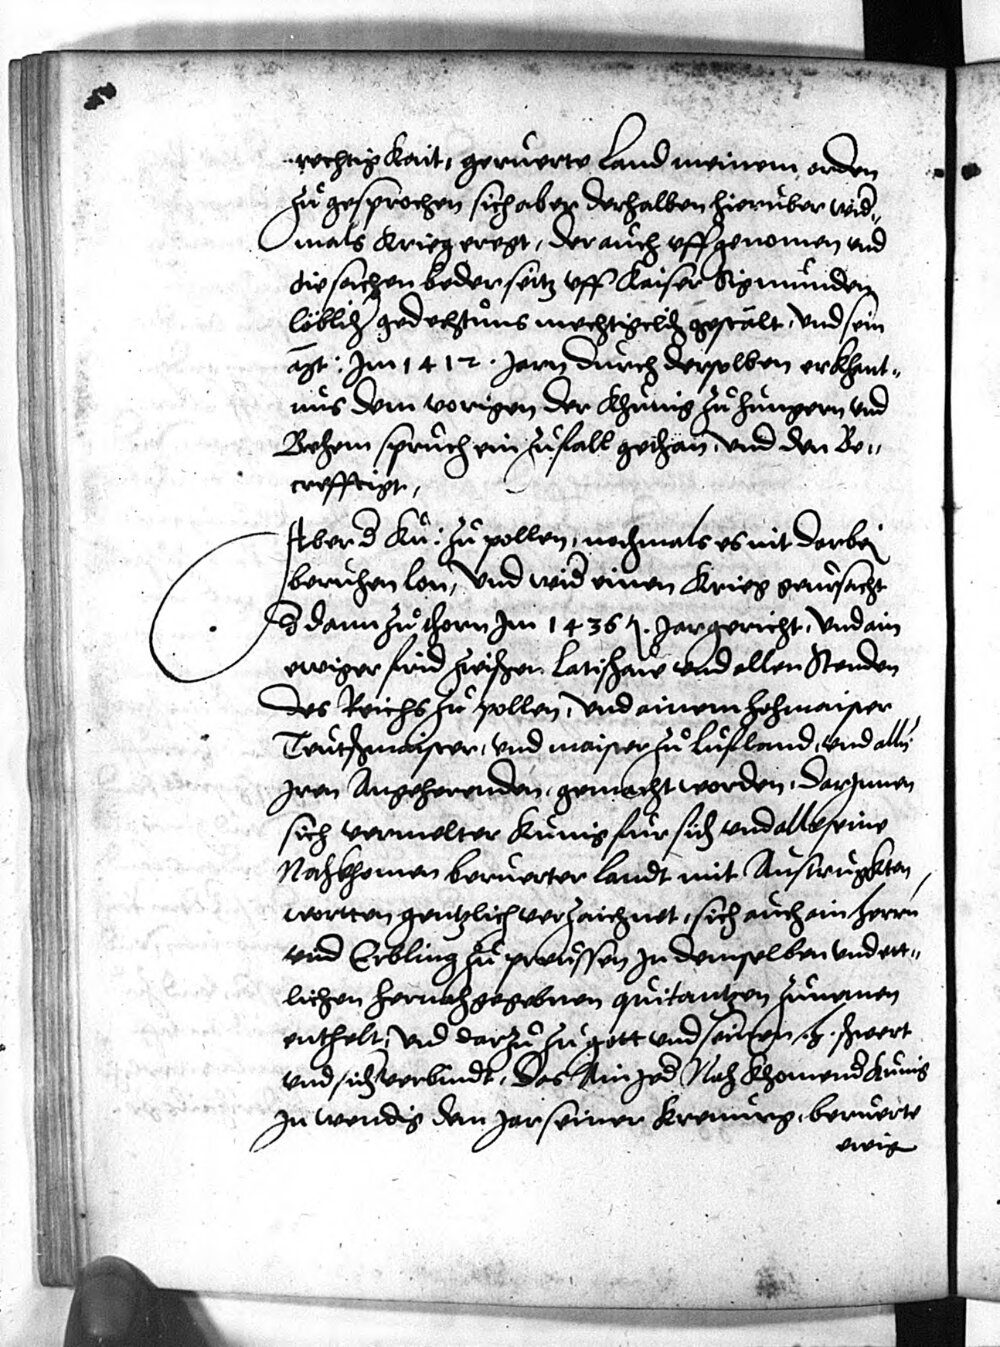 rechtigkait, geruerte Land meinem orden
zu gesprochen sich aber derhalben hieruber wid„
mals krieg eregt, der auch uffgenomen und
die sachen beder seitz uff Kaiser Sigmunden
löblich gedechtnus mechtigclich gestalt, und sein
Im 1412. Jarn durch derselben erkhant„
nus dem vorigen der Khunig zu hungern und
Behem spruch ein zufall gethan, und den Be„
crefftigt,
Aber d Ku: zu pollen, nochmals es nit darbei
beruhen lon, und wid einen Krieg geursacht
d dann zu thorn Im 1436. Jar gericht, und ain
ewiger frid zwischen Latißlaw und allen Stenden
des Reichs zu pollen, und ainem hohmaister
Teutschmaister, und maister zu Lufland, und allen
Iren Angeherenden, gemacht worden, Darjnnen
sich vermelter Kunig fur sich und alle seine
Nachkhomen beruerter Landt mit Austrugkten
wortten gentzlich verzaichnet, sich auch ain herrn
und Erbling zu preussen In demselben und ett„
lichen hernach gegebnen quitantzen zunemen
enthelt, und darzu zu gott und seinen h. schwert
und sich verbindt, Das Ain jed Nachkhomend Kunig
In wendig dem Jar seiner Kronung, beruerte
ewig